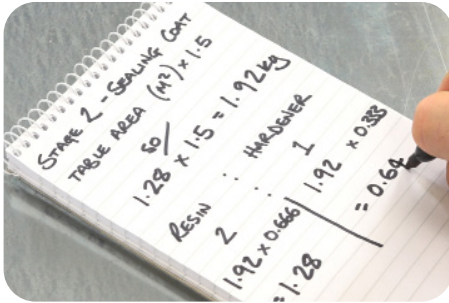 STAGE 2 - SEALING COAT
TABLE AREA (M²) × 1.5
SO/
1.28 × 1.5 = 1.92kg
RESIN : HARDENER
2 : 1
1.92 × 0.666 | 1.92 × 0.333
= 1.28 | = 0.64